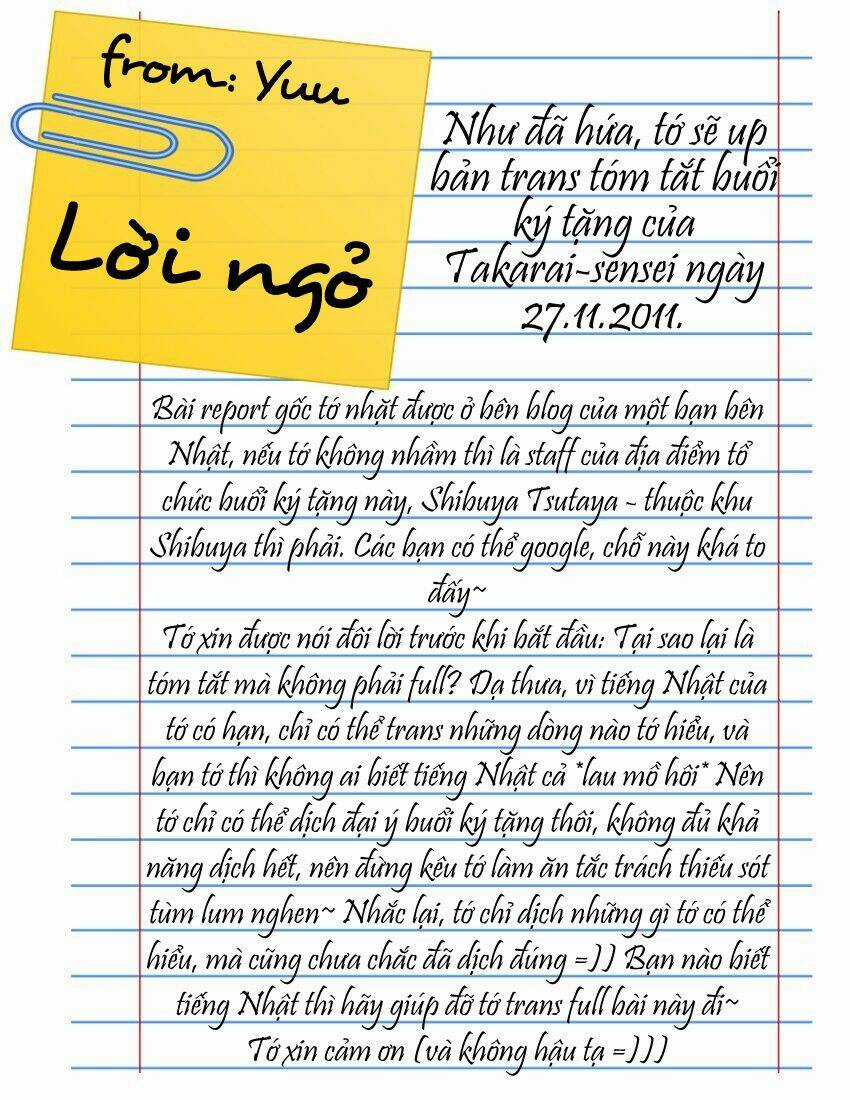 from: Yuu
Lời ngỏ
Như đã hứa, tớ sẽ up
bản trans tóm tắt buổi
ký tặng của
Takarai-sensei ngày
27.11.2011.
Bài report gốc tớ nhặt được ở bên blog của một bạn bên
Nhật, nếu tớ không nhầm thì là staff của địa điểm tổ
chức buổi ký tặng này, Shibuya Tsutaya - thuộc khu
Shibuya thì phải. Các bạn có thể google, chỗ này khá to
đấy~
Tớ xin được nói đôi lời trước khi bắt đầu: Tại sao lại là
tóm tắt mà không phải full? Dạ thưa, vì tiếng Nhật của
tớ có hạn, chỉ có thể trans những dòng nào tớ hiểu, và
bạn tớ thì không ai biết tiếng Nhật cả *lau mồ hôi* Nên
tớ chỉ có thể dịch đại ý buổi ký tặng thôi, không đủ khả
năng dịch hết, nên đừng kêu tớ làm ăn tắc trách thiếu sót
tùm lum nghen~ Nhắc lại, tớ chỉ dịch những gì tớ có thể
hiểu, mà cũng chưa chắc đã dịch đúng =)) Bạn nào biết
tiếng Nhật thì hãy giúp đỡ tớ trans full bài này đi~
Tớ xin cảm ơn (và không hậu tạ =)))